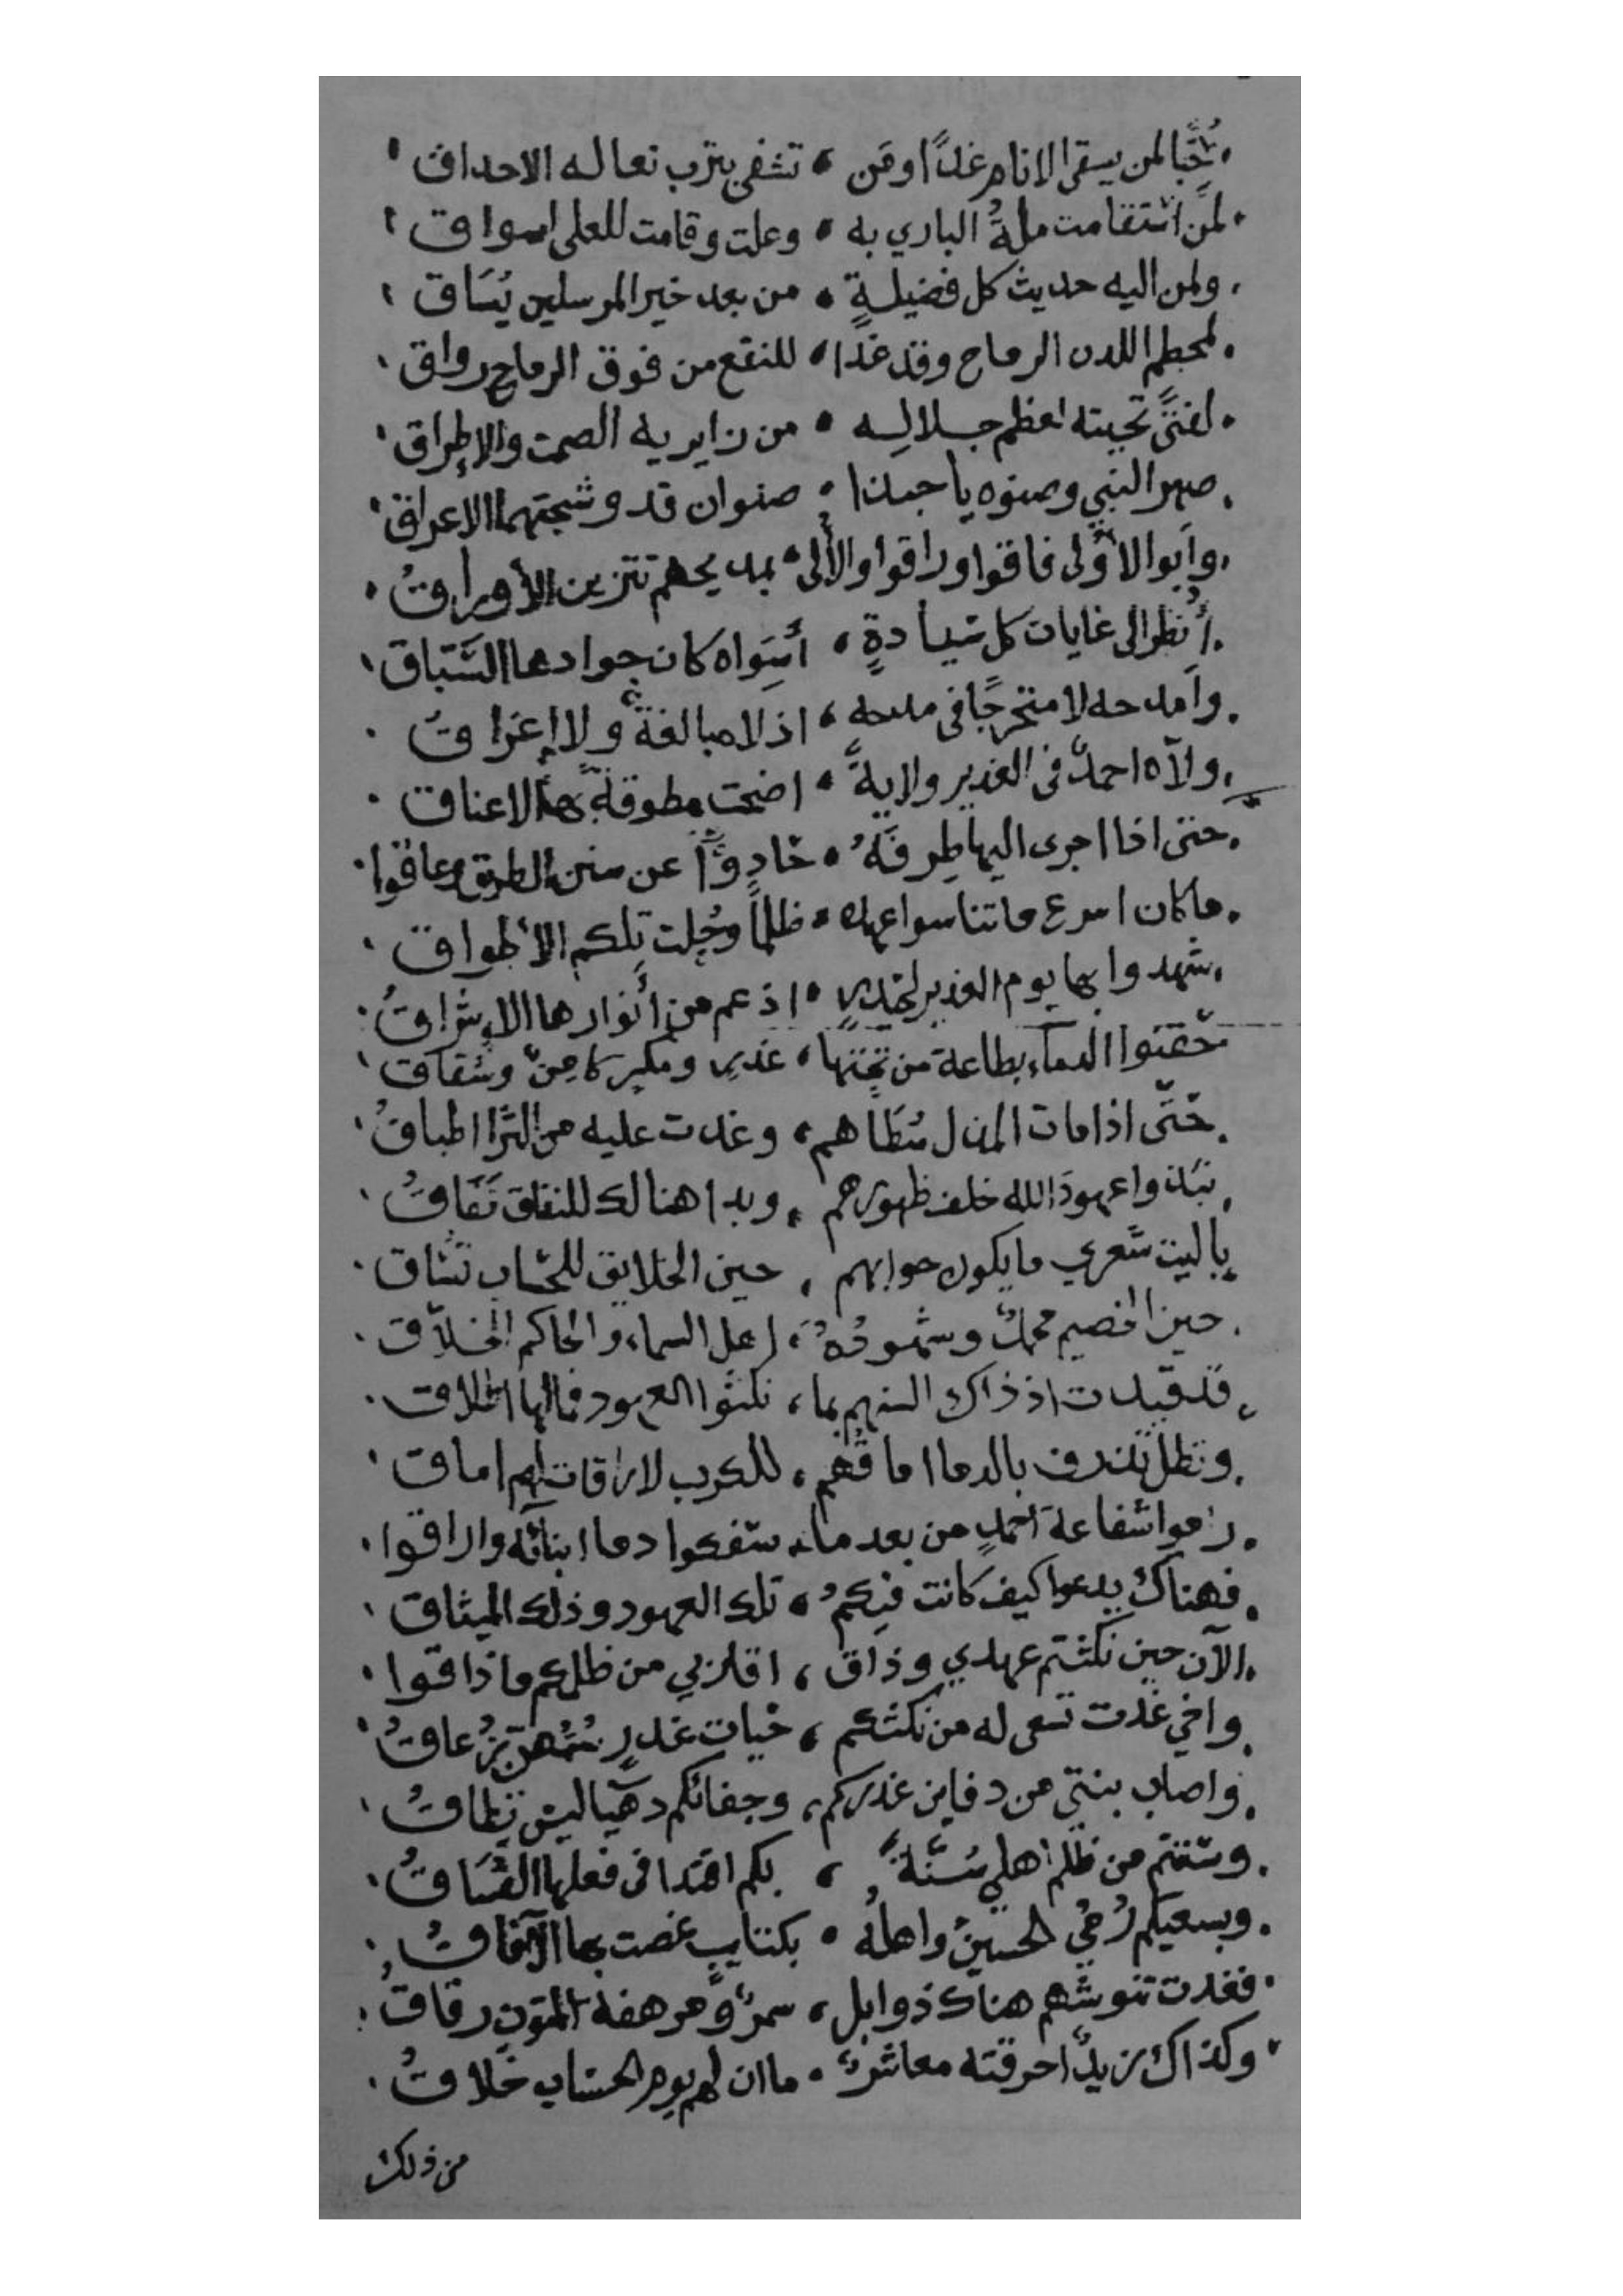 حُبًّا لمن يسقى الانام غدًا ومَن ، تشفى بترب نعاله الاحداق
لمن استقامت ملةُ الباري به ، وعلت وقامت للعلى اسواق
ولمن اليه حديث كل فضيلةٍ ، من بعد خير المرسلين يُسَاق
لمحطم اللدن الرماح وقد غدا ، للنقع من فوق الرماح رواق
لفتىً تحيته لعظم جلاله ، من زايريه الصمت والإطراق
صهر النبي وصنوه يا حبذا ، صنوان قد وشجتهما الاعراق
وابو الأولى فاقوا وراقوا والأُلى ، بمديحهم تتزين الأوراقُ
أُنظر الى غايات كل سيادةٍ ، أسِواه كان جوادها السَّبّاق
وامدحه لا متحرجًا في مدحه ، اذ لا مبالغةٌ ولا إغراقُ
ولّاه احمدُ في الغدير ولايةً ، اضحت مطوقةً بها الاعناق
حتى اذا اجرى اليها طِرفَهُ ، حادوا عن سنن الطريق وعاقوا
ما كان اسرع ما تناسوا عهده ، ظلمًا وحُلت تلكم الأطواق
شهدوا بها يوم الغدير لحيدرٍ ، اذ عم من أنوارها الاشراقُ
حقنوا الدماء بطاعة من تحتها ، غدر ومكر كامِنٌ وشقاق
حتّى اذا مات المذل سُطَاهم ، وغدت عليه من الثرا اطباقُ
نبذوا عهودَ الله خلف ظهورهم ، وبدا هنالك للنفاق نَفَاقُ
يا ليت شعري ما يكون جوابهم ، حين الخلايق للحساب تسَاق
حين الخصيم محمدٌ وشهودُهُ ، اهل السماء والحاكم الخلاّق
قد قيدت اذ ذاك السنهم بما ، نكثوا العهود فما لها اطلاق
وتظل تذرف بالدما اماقُهم ، للكرب لا راقات لهم اماق
راموا شفاعة احمدٍ من بعد ما ، سفكوا دما ابنائه واراقوا
فهناك يدعوا كيفَ كانت فيكمُ ، تلك العهود وذلك الميثاق
الآن حين نكثتم عهدي وذاق ، اقاربي من ظلمكم ما ذاقوا
واخي غدت تسعى له من نكثكم ، حيات غدرٍ سُمُّهن زعاقُ
واصاب بنتي من دفاين غدركم ، وجفائكم دهيا ليس تطاقُ
وسننتم من ظلم اهلي سُنّةً ، بكم اقتدا في فعلها الفُسّاقُ
وبسعيكم رُمي الحسينُ واهلهُ ، بكتايبٍ غصت بها الآفاقُ
فغدت تنوشهم هناك ذوابل ، سمرٌ ومرهفة المتون رقاقُ
وكذاك زيدٌ احرقته معاشرٌ ، ما ان لهم يوم الحساب خلاقُ
من ذلك